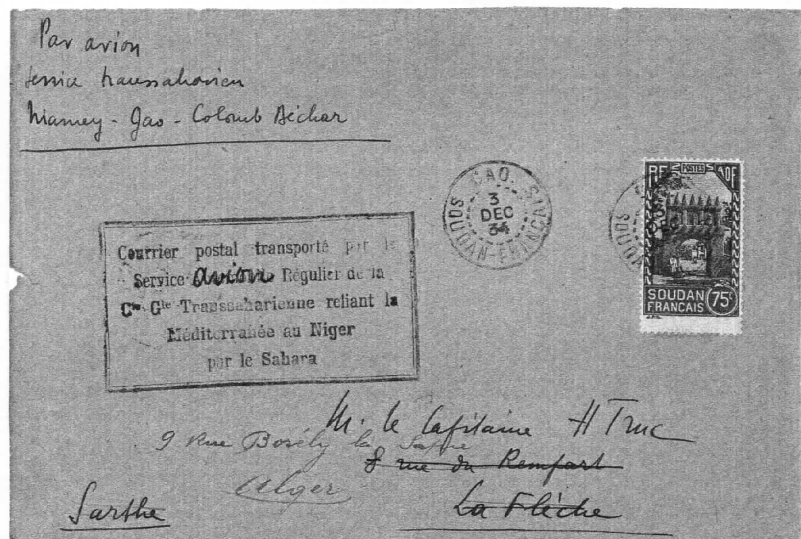 Par avion
Service transsaharien
Niamey - Gao - Colomb Béchar
GAO
3
DEC
34
SOUDAN-FRANÇAIS
RF POSTES AOF
SOUDAN
FRANCAIS 75c
SOUDAN
Courrier postal transporté par le
Service avion Régulier de la
Cie Gle Transsaharienne reliant la
Méditerranée au Niger
par le Sahara
M. le Capitaine H Truc
9 Rue Bosély la
8 rue du Rempart
Alger
La Flèche
Sarthe